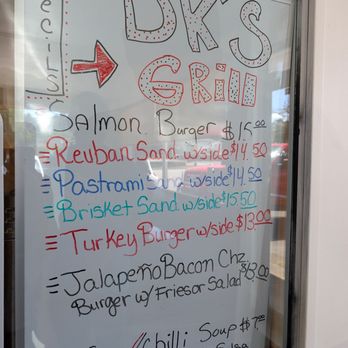 DK'S
Grill
SAlmon Burger $15.00
Reuban Sand w/side $14.50
Pastrami Sand w/side $14.50
Brisket Sand w/side $15.50
Turkey Burger w/side $13.00
Jalapeño Bacon Chz
Burger w/ Fries or Salad $13.00
Chilli Soup $7.00